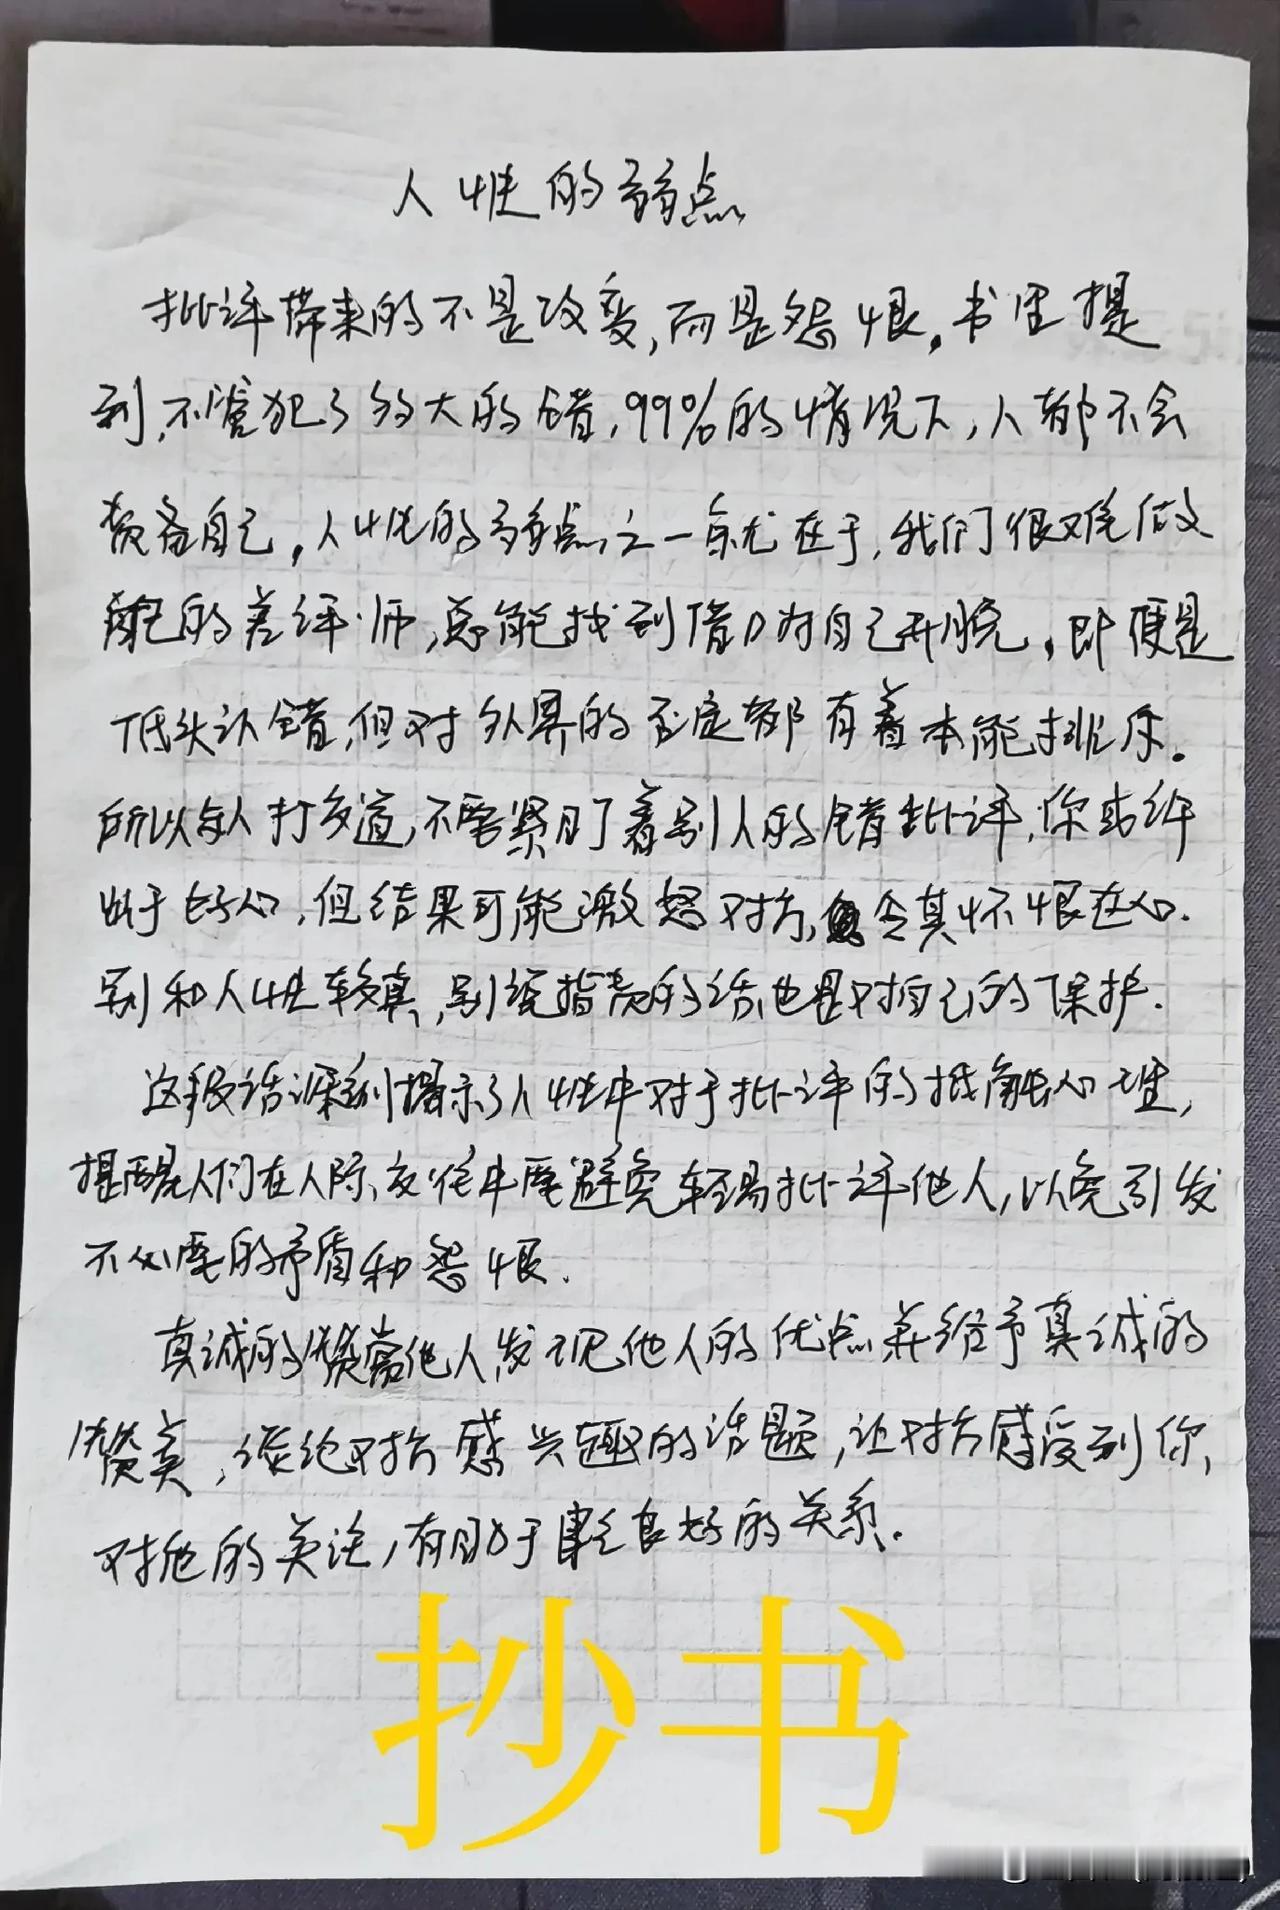 人性的弱点
批评带来的不是改变,而是怨恨。书里提
到,不管犯了多大的错,99%的情况下,人都不会
责备自己,人性的弱点之一就在于,我们很难做
自己的差评师,总能找到借口为自己开脱。即便是
低头认错,但对外界的否定都有着本能排斥。
所以与人打交道,不要紧盯着别人的错批评,你或许
出于好心,但结果可能激怒对方,令其怀恨在心.
别和人性较真,别说指责的话,也是对自己的保护.
这段话深刻揭示了人性中对于批评的抵触心理,
提醒人们在人际交往中要避免轻易批评他人,以免引发
不必要的矛盾和怨恨.
真诚的赞赏他人,发现他人的优点并给予真诚的
赞美,谈论对方感兴趣的话题,让对方感受到你,
对他的关注,有助于建立良好的关系.
抄书